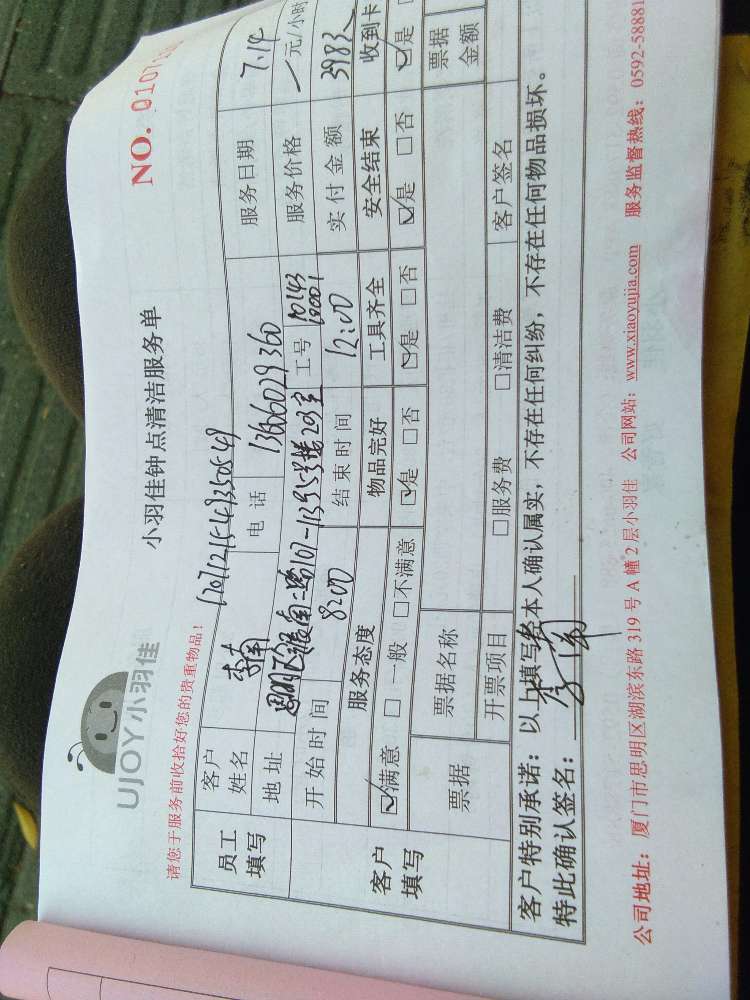 UJOY小羽佳
小羽佳钟点清洁服务单
NO. 0107
请您于服务前收拾好您的贵重物品！
员工填写
客户姓名 李南 电话 13666029360 服务日期 7.14
地址 服务价格 元/小时
工号
开始时间 8:00 结束时间 12:00 实付金额
客户填写
服务态度 物品完好 工具齐全 安全结束 收到卡
☑满意 □一般 □不满意 ☑是 □否 ☑是 □否 ☑是 □否 ☑是
票据 票据名称 票据金额
开票项目 □服务费 □清洁费 客户签名
客户特别承诺：以上填写经本人确认属实，不存在任何纠纷，不存在任何物品损坏。
特此确认签名：李南
公司地址：厦门市思明区湖滨东路319号A幢2层小羽佳 公司网站：www.xiaoyujia.com 服务监督热线：0592-58881